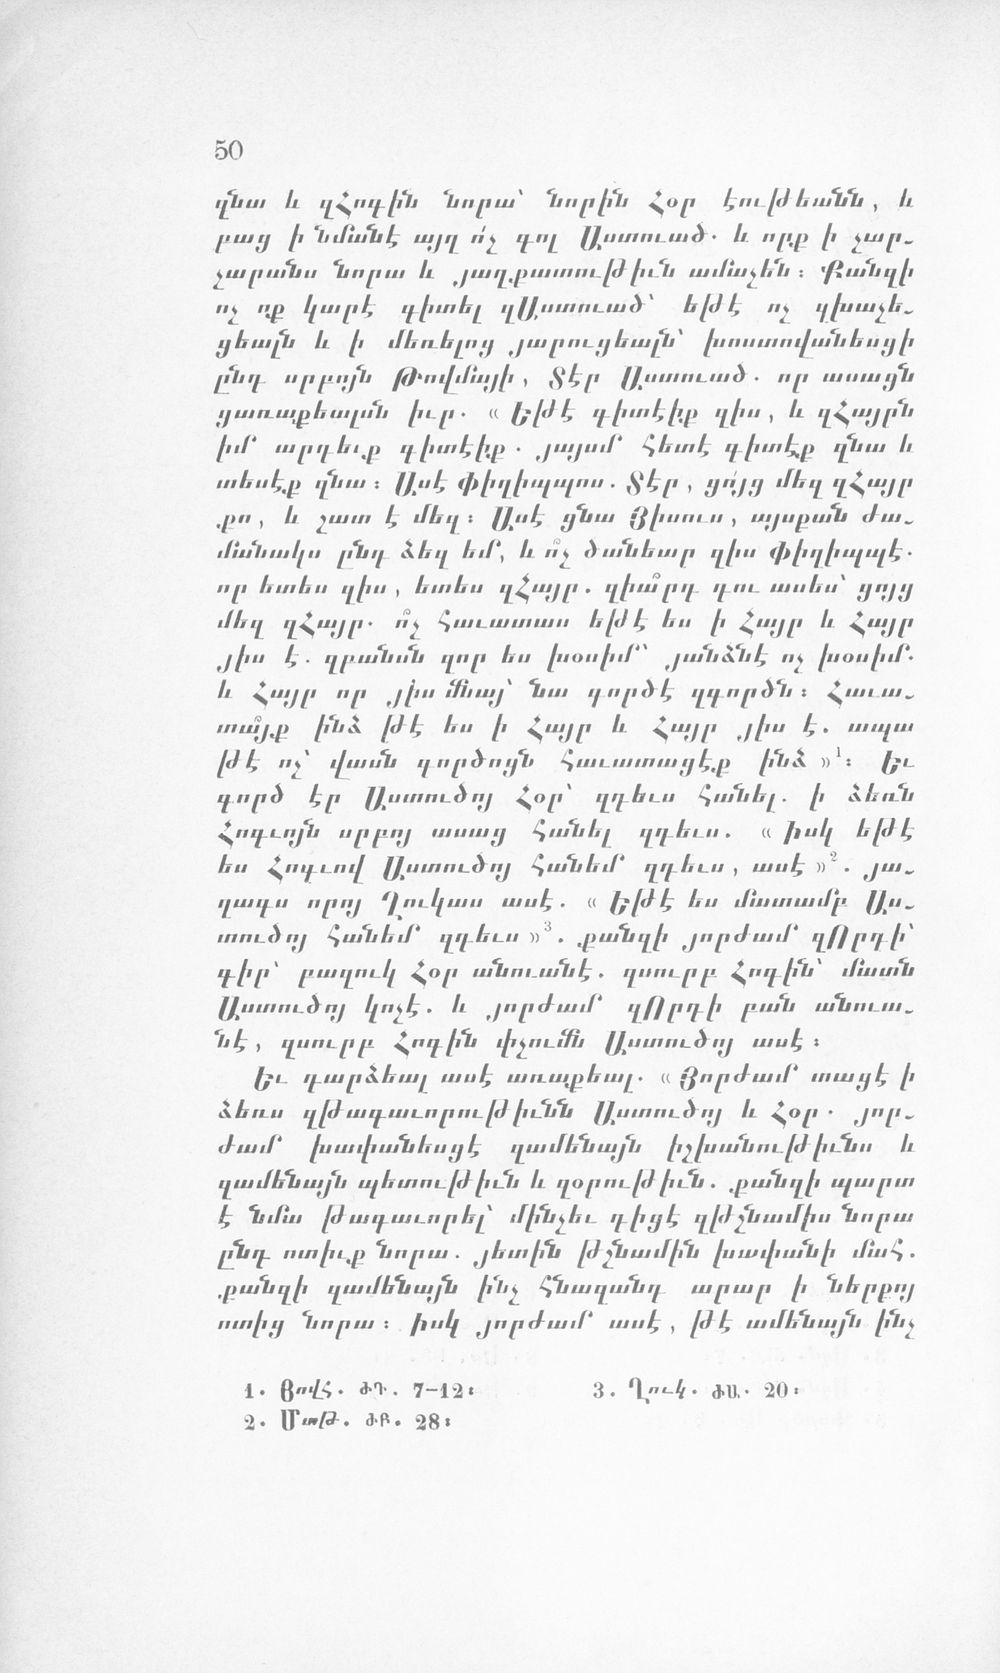 50
զնա և զՀոգին նորա՝ նորին Հօր էութեանն, և
բաց ի նմանէ այղ ո՛չ գոլ Աստուած. և որք ի չար-
չարանս նորա և յաղքատութիւն ամաչեն։ Քանզի
ոչ ոք կարէ գիտել զԱստուած՝ եթէ ոչ զխաչե-
ցեալն և ի մեռելոց յարուցեալն՝ խոստովանեսցի
ընդ սրբոյն Թովմայի, Տէր Աստուած. որ ասացն
ցառաքեալսն իւր. « Եթէ գիտէիք զիս, և զՀայրն
իմ արդեւք գիտէիք. յայսմ հետէ գիտէք զնա և
տեսէք զնա։ Ասէ Փիղիպպոս. Տէր, ցո՛յց մեզ զՀայր
քո, և շատ է մեզ։ Ասէ ցնա Յիսուս, այսքան ժա-
մանակս ընդ ձեզ եմ, և ո՞չ ծանեար զիս Փիղիպպէ.
որ ետես զիս, ետես զՀայր. զիա՞րդ դու ասես՝ ցոյց
մեզ զՀայր. ո՞չ հաւատաս եթէ ես ի Հայր և Հայր
յիս է. զբանսն զոր ես խօսիմ՝ յանձնէ ոչ խօսիմ.
և Հայր որ յիս մնայ՝ նա գործէ զգործն։ Հաւա-
տա՞յք ինձ թէ ես ի Հայր և Հայր յիս է. ապա
թէ ոչ՝ վասն գործոցն հաւատացէք ինձ »¹։ Եւ
գործ էր Աստուծոյ Հօր՝ զդեւս հանել. ի ձեռն
Հոգւոյն սրբոյ ասաց հանել զդեւս. « Իսկ եթէ
ես Հոգւով Աստուծոյ հանեմ զդեւս, ասէ »². յա-
ղագս որոյ Ղուկաս ասէ. « Եթէ ես մատամբ Աս-
տուծոյ հանեմ զդեւս »³. քանզի յորժամ զՈրդի՝
գիր՝ բազուկ Հօր անուանէ. զսուրբ Հոգին՝ մատն
Աստուծոյ կոչէ. և յորժամ զՈրդի բան անուա-
նէ, զսուրբ Հոգին փչումն Աստուծոյ ասէ։
Եւ դարձեալ ասէ առաքեալ. « Յորժամ տացէ ի
ձեռս զթագաւորութիւնն Աստուծոյ և Հօր. յոր-
ժամ խափանեսցէ զամենայն իշխանութիւնս և
զամենայն պետութիւն և զօրութիւն. քանզի պարտ
է նմա թագաւորել՝ մինչեւ դիցէ զթշնամիս նորա
ընդ ոտիւք նորա. յետին թշնամին խափանի մահ.
քանզի զամենայն ինչ հնազանդ արար ի ներքոյ
ոտից նորա։ Իսկ յորժամ ասէ, թէ ամենայն ինչ
1. Յովհ. ԺԴ. 7-12։
2. Մատթ. ԺԲ. 28։
3. Ղուկ. ԺԱ. 20։